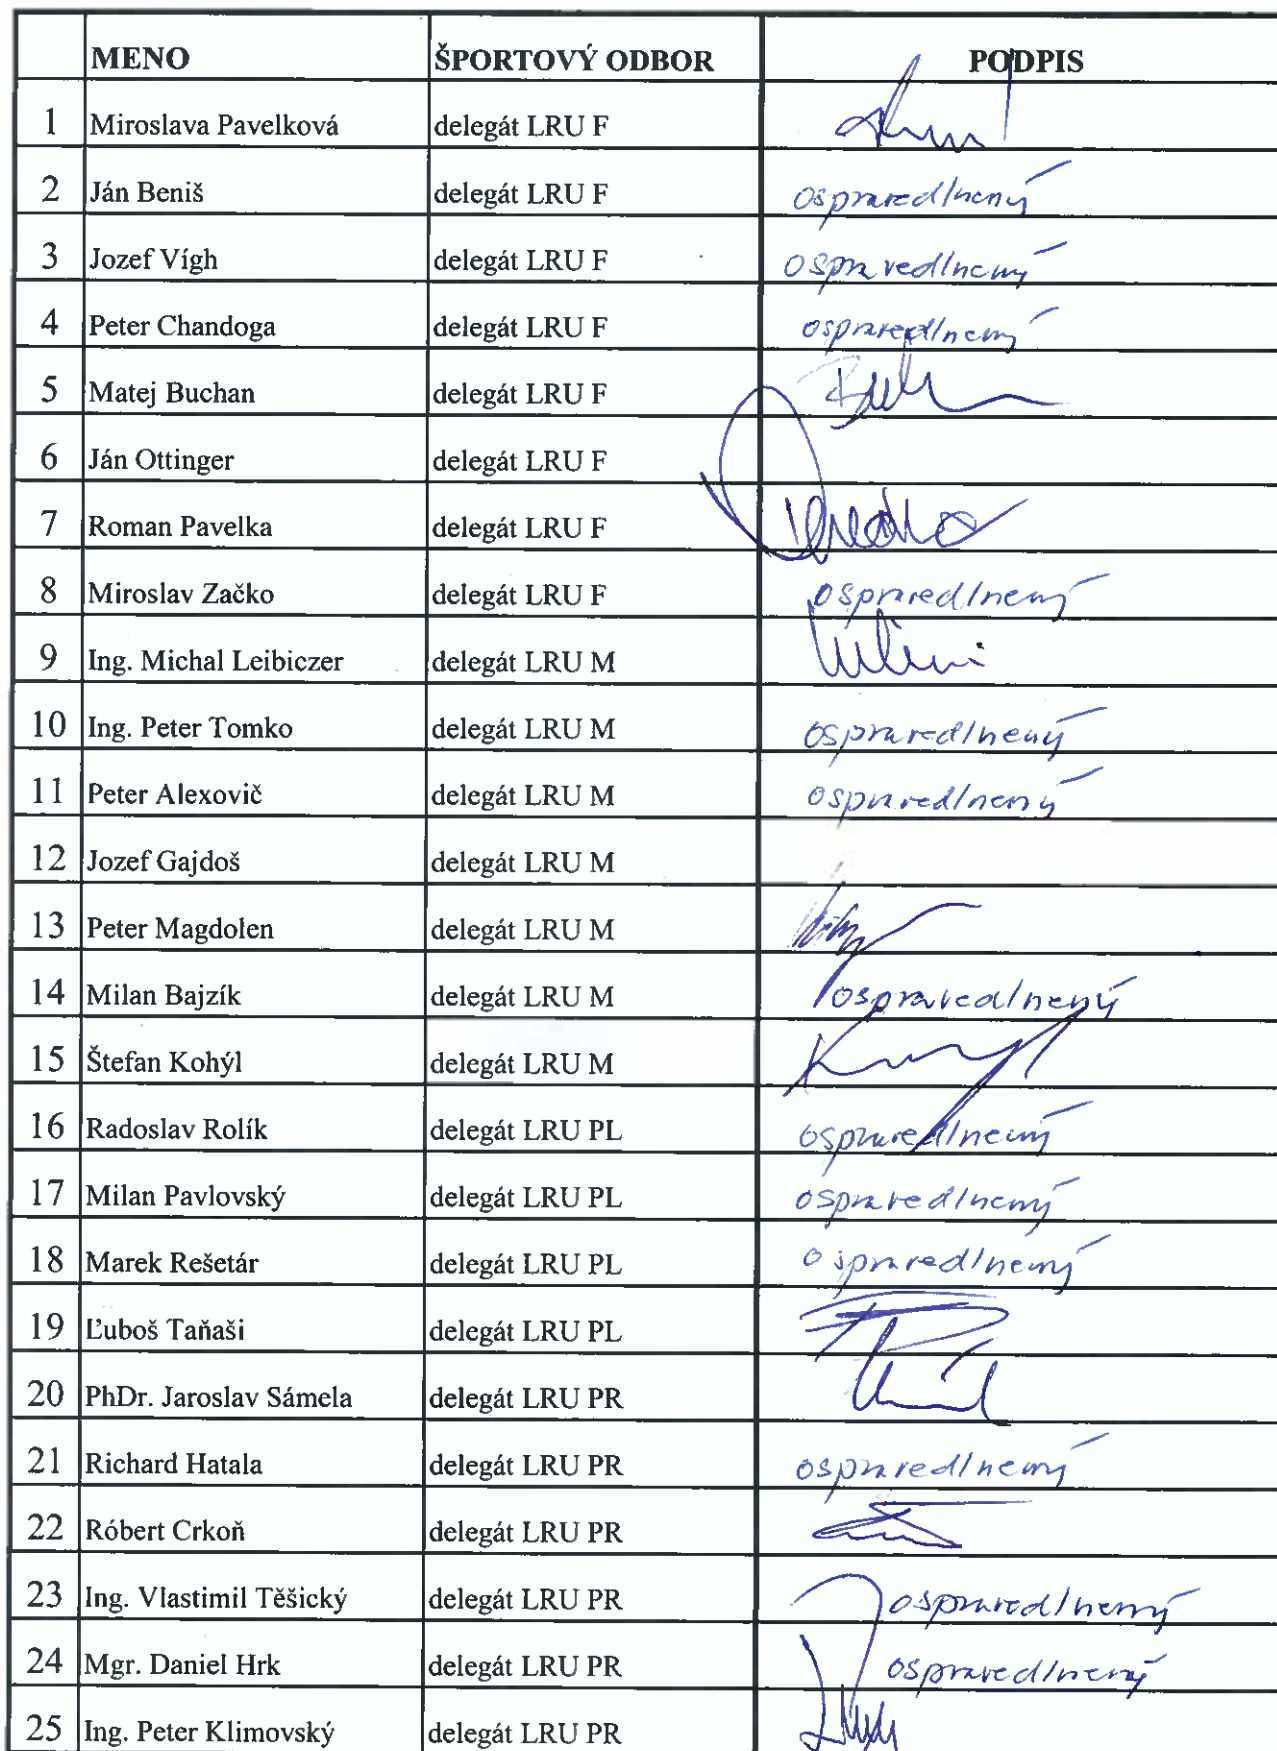 MENO ŠPORTOVÝ ODBOR PODPIS
1 Miroslava Pavelková delegát LRU F
2 Ján Beniš delegát LRU F ospravedlnený
3 Jozef Vígh delegát LRU F ospravedlnený
4 Peter Chandoga delegát LRU F ospravedlnený
5 Matej Buchan delegát LRU F
6 Ján Ottinger delegát LRU F
7 Roman Pavelka delegát LRU F
8 Miroslav Začko delegát LRU F ospravedlnený
9 Ing. Michal Leibiczer delegát LRU M
10 Ing. Peter Tomko delegát LRU M ospravedlnený
11 Peter Alexovič delegát LRU M ospravedlnený
12 Jozef Gajdoš delegát LRU M
13 Peter Magdolen delegát LRU M
14 Milan Bajzík delegát LRU M ospravedlnený
15 Štefan Kohýl delegát LRU M
16 Radoslav Rolík delegát LRU PL ospravedlnený
17 Milan Pavlovský delegát LRU PL ospravedlnený
18 Marek Rešetár delegát LRU PL ospravedlnený
19 Ľuboš Taňaši delegát LRU PL
20 PhDr. Jaroslav Sámela delegát LRU PR
21 Richard Hatala delegát LRU PR ospravedlnený
22 Róbert Crkoň delegát LRU PR
23 Ing. Vlastimil Těšický delegát LRU PR ospravedlnený
24 Mgr. Daniel Hrk delegát LRU PR ospravedlnený
25 Ing. Peter Klimovský delegát LRU PR